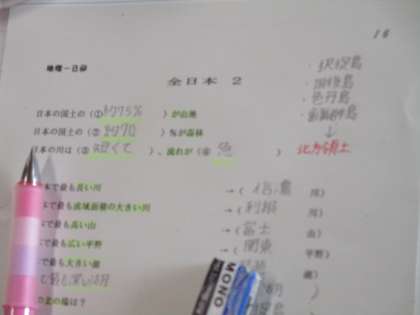 16
地理-日本
全日本 2
・択捉島
・国後島
・色丹島
・歯舞群島
↓
北方領土
日本の国土の(① 約75% )が山地
日本の国土の(② 約70 )%が森林
日本の川は(③ 短くて )、流れが(④ 急 )
本で最も長い川 →( 信濃 川)
本で最も流域面積の大きい川 →( 利根 川)
本で最も高い山 →( 富士 山)
本で最も広い平野 →( 関東 平野)
で最も大きい湖 →( 湖)
で最も深い湖
の北の端は?
MONO